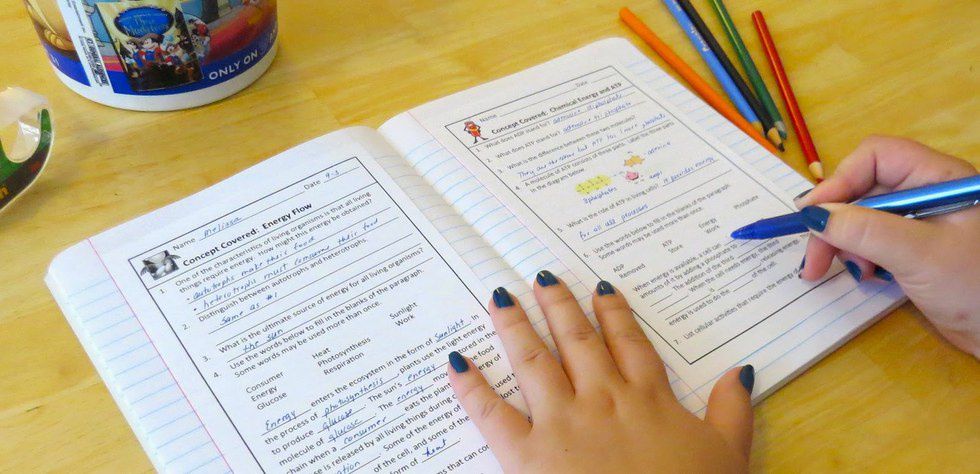 ONLY ON
Name Melissa Date 9-3
Concept Covered: Energy Flow
1. One of the characteristics of living organisms is that all living
things require energy. How might this energy be obtained?
- autotrophs make their food
- heterotrophs must consume their food
2. Distinguish between autotrophs and heterotrophs.
same as #1
3. What is the ultimate source of energy for all living organisms?
the sun
4. Use the words below to fill in the blanks of the paragraph.
Some words may be used more than once.
Consumer Heat Sunlight
Energy Photosynthesis Work
Glucose Respiration
Energy enters the ecosystem in the form of sunlight. In
the process of photosynthesis, plants use the light energy
to produce glucose. The sun's energy stored in the
glucose. The energy move the food
chain when a consumer eats the plan ergy of
se is released by all living things during c used to
ation of the cell, and some of the lost to
Some of the energy of
form of heat.
ms that can co
Name Date
Concept Covered: Chemical Energy and ATP
1. What does ADP stand for? adenosine diphosphate
2. What does ATP stand for? adenosine tri phosphate
3. What is the difference between these two molecules?
They are the same but ATP has 1 more phosphate
4. A molecule of ATP consists of three parts. Label the three parts
in the diagram below.
3 phosphates sugar adenine
5. What is the role of ATP in living cells? It provides energy
for all cell processes
6. Use the words below to fill in the blanks of the paragraph.
Some words may be used more than once.
ADP ATP Energy Phosphate
Removed Store Work
When energy is available, a cell can
amounts of it by adding a phosphate to
The addition of the third
the cell needs energy, the third
is releasing energy. T
energy is used to do the of the cell.
7. List cellular activities that require the energy